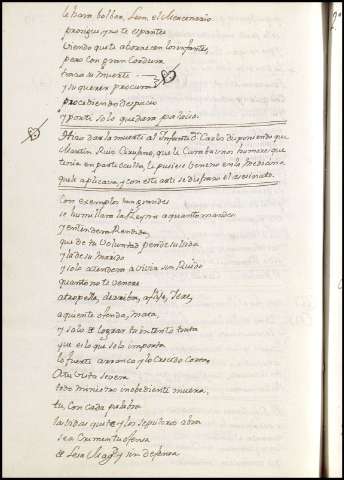 le hara bolber, Leon, el Mercenario
prosigue, y no te espantes
biendo que te aborrecen los infantes
pero con gran Cordura
traça su muerte
y su querer procura
procediendo despacio
y para ti solo quedara palacio.
Traza dar la muerte al Infante Dn. Carlos disponiendo que
Martin Ruiz Cirujano, que le Curaba unos humores que
tenia en parte oculta, le pusiese beneno en la medicina
que le aplicava, y con este arte se disfrazo el asesinato.
Con exemplos tan grandes
se humillara la Reyna a quanto mandes
y entendera Rendida,
que de tu voluntad pende su bida
y la de su marido
y solo atendera a vivir sin Ruido
quanto no te venere
atropella, derriba, aflije, yere,
a quien te ofenda, mata,
y solo de lograr tu intento trata
que es lo que solo importa
lo fuerte arranca y lo Crecido Corta
A tu vista severa
todo ministro inobediente muera,
tu con cada palabra
las vidas quite y los sepulcros abra
sea Crimen tu ofensa
de Lesa Magd. y sin defensa